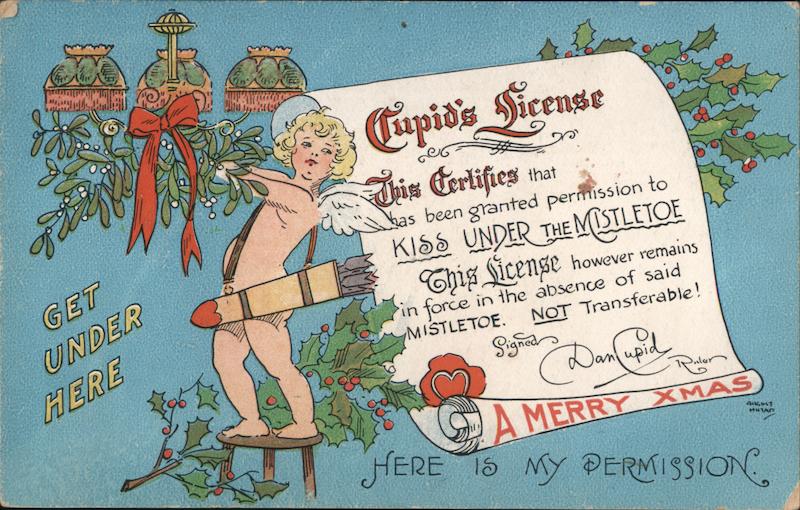 Cupid's License
This Certifies that
has been granted permission to
KISS UNDER THE MISTLETOE
This License however remains
in force in the absence of said
MISTLETOE. NOT Transferable!
Signed
Dan Cupid
Ruler
A MERRY XMAS
GET
UNDER
HERE
HERE IS MY PERMISSION.
AUGUST
HUTAF